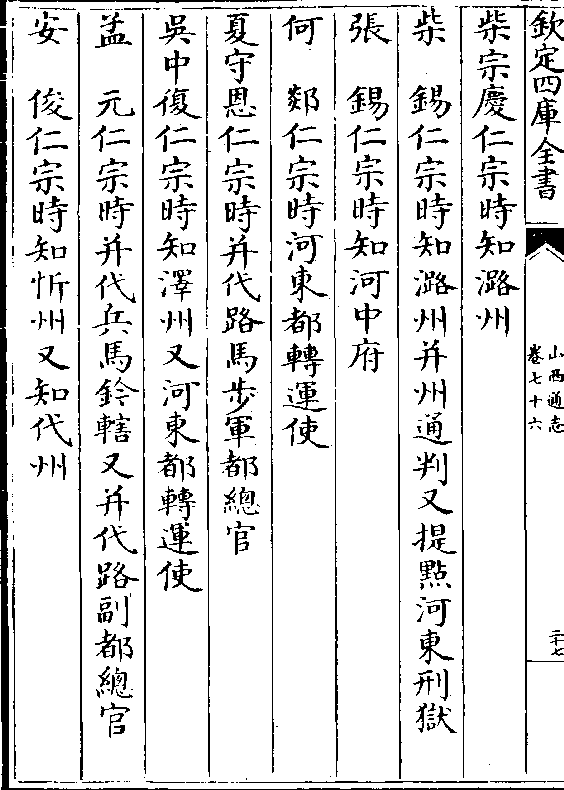 欽定四庫全書
山西通志
卷七十六
二十七
柴宗慶仁宗時知潞州
柴 錫仁宗時知潞州并州通判又提點河東刑獄
張 錫仁宗時知河中府
何 郯仁宗時河東都轉運使
夏守恩仁宗時并代路馬步軍都總官
吳中復仁宗時知澤州又河東都轉運使
孟 元仁宗時并代兵馬鈐轄又并代路副都總官
安 俊仁宗時知忻州又知代州